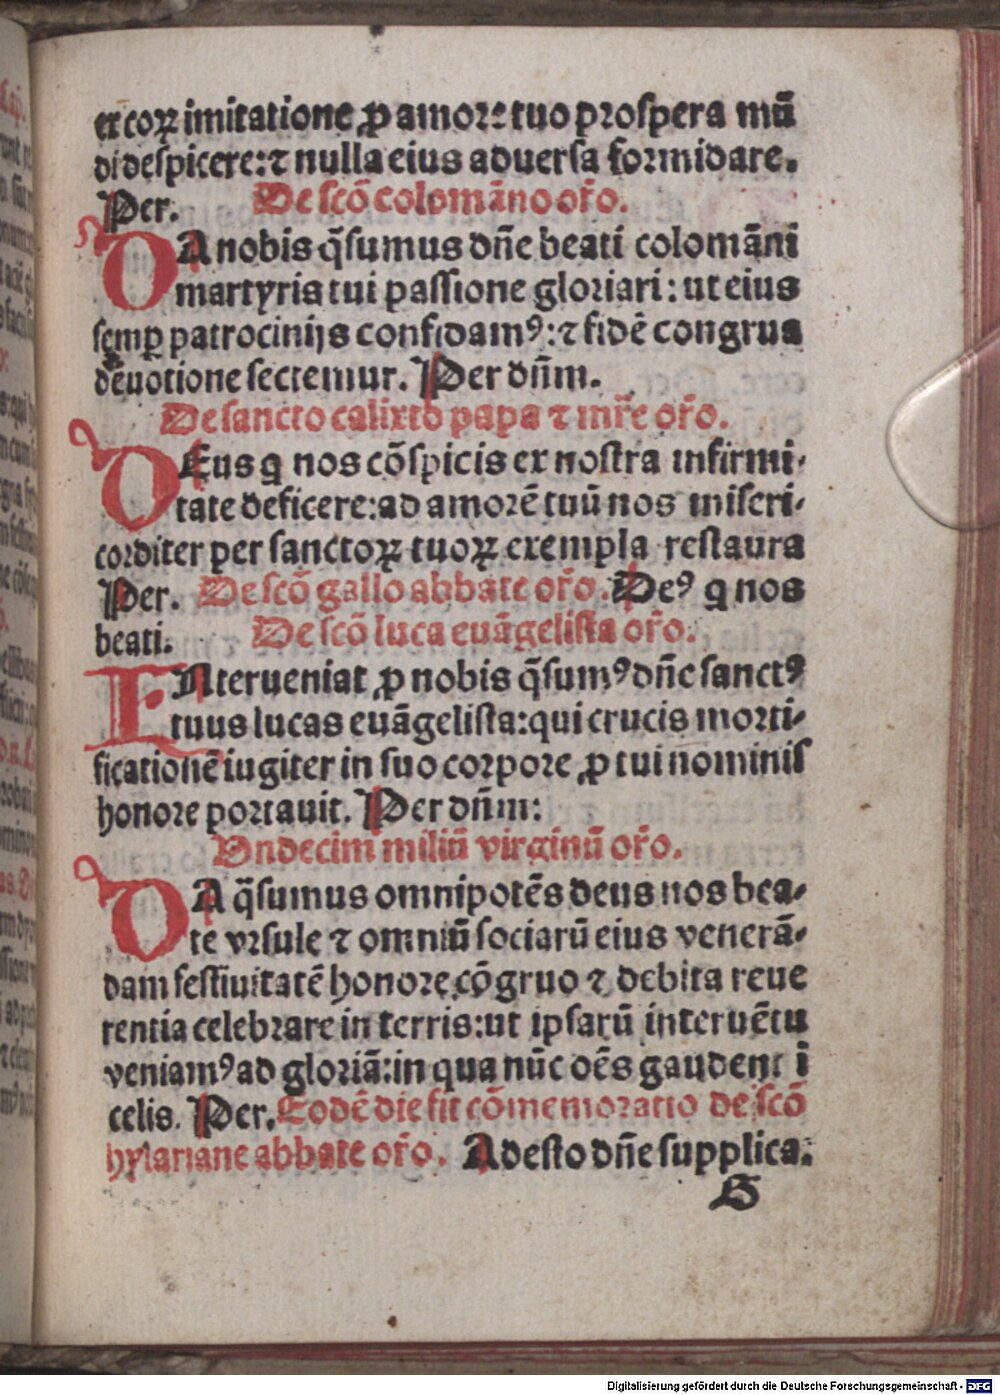 ex eoꝝ imitatione ꝓ amore tuo prospera mū
di despicere: ⁊ nulla eius aduersa formidare.
Per. De scō colomāno or̄o.
DA nobis q̄sumus dn̄e beati colomāni
martyris tui passione gloriari: ut eius
semꝑ patrocinijs confidamꝰ: ⁊ fidē congrua
deuotione sectemur. Per dn̄m.
De sancto calixto papa ⁊ mr̄e or̄o.
DEus q nos cōspicis ex nostra infirmi-
tate deficere: ad amorē tuū nos miseri-
corditer per sanctoꝝ tuoꝝ exempla restaura
Per. De scō gallo abbate or̄o. Deꝰ q nos
beati. De scō luca euāgelista or̄o.
INterueniat ꝓ nobis q̄sumꝰ dn̄e sanctꝰ
tuus lucas euāgelista: qui crucis morti-
ficationē iugiter in suo corpore ꝓ tui nominis
honore portauit. Per dn̄m:
Vndecim miliū virginū or̄o.
DA q̄sumus omnipotēs deus nos bea-
te vrsule ⁊ omniū sociarū eius venerā-
dam festiuitatē honore cōgruo ⁊ debita reue
rentia celebrare in terris: ut ipsarū interuētu
veniamꝰ ad gloriā: in qua nūc oēs gaudent ī
celis. Per. Eodē die fit cōmemoratio de scō
hylariane abbate or̄o. Adesto dn̄e supplica.
G
Digitalisierung gefördert durch die Deutsche Forschungsgemeinschaft - DFG